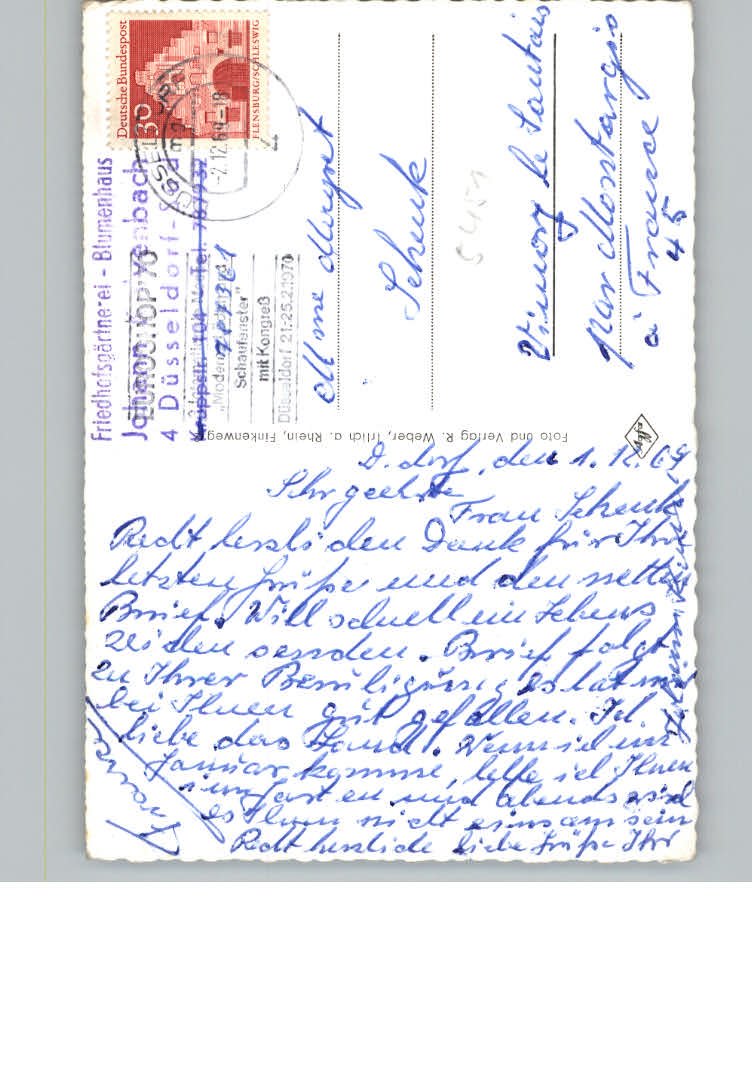 Deutsche Bundespost
30
FLENSBURG/SCHLESWIG
-2.12.69-18
Friedhofsgärtnerei - Blumenhaus
Johann
4 Düsseldorf-
104
Tel. 787932
777361
EUROSHOP'70
"Moderne
Schaufenster"
mit Kongreß
Düsseldorf 21.-25.2.1970
Mme Margret
Schenk
Vimory le Lautais
par Montargis
à France
45
5451
Foto und Verlag R. Weber, Irlich a. Rhein, Finkenweg
Agfa
D.dorf, den 1.12.69
Sehr geehrte
Frau Schenk
Recht herzlichen Dank für Ihre
letzten Grüße und den netten
Brief. Will schnell ein Lebens
zeichen senden. Brief folgt
zu Ihrer Beruhigung es hat mir
bei Ihnen gut gefallen. Ich
liebe das Land. Wenn ich im
Januar komme, helfe ich Ihnen
im Garten und abends wird
es Ihnen nicht einsam sein
Recht herzliche liebe Grüße Ihr
Johann